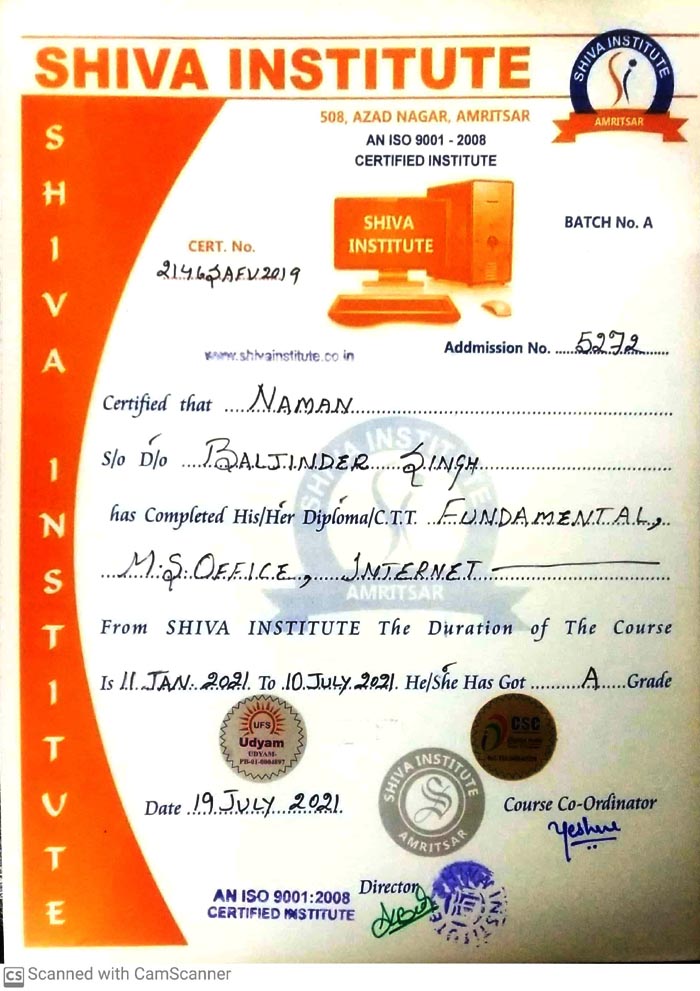 SHIVA INSTITUTE
SHIVA INSTITUTE
AMRITSAR
508, AZAD NAGAR, AMRITSAR
AN ISO 9001 - 2008
CERTIFIED INSTITUTE
SHIVA INSTITUTE
SHIVA
INSTITUTE
BATCH No. A
CERT. No.
www.shivainstitute.co.in
Addmission No. 5272
Certified that NAMAN
S/o D/o BALJINDER SINGH
has Completed His/Her Diploma/C.T.T. FUNDAMENTAL,
M.S.OFFICE, INTERNET
SHIVA INSTITUTE
AMRITSAR
From SHIVA INSTITUTE The Duration of The Course
Is 11 JAN. 2021 To 10.JULY.2021. He/She Has Got A Grade
UFS
Udyam
UDYAM-
CSC
SHIVA INSTITUTE
S
AMRITSAR
Date 19.JULY.2021.
Course Co-Ordinator
Director
AN ISO 9001:2008
CERTIFIED INSTITUTE
CS Scanned with CamScanner